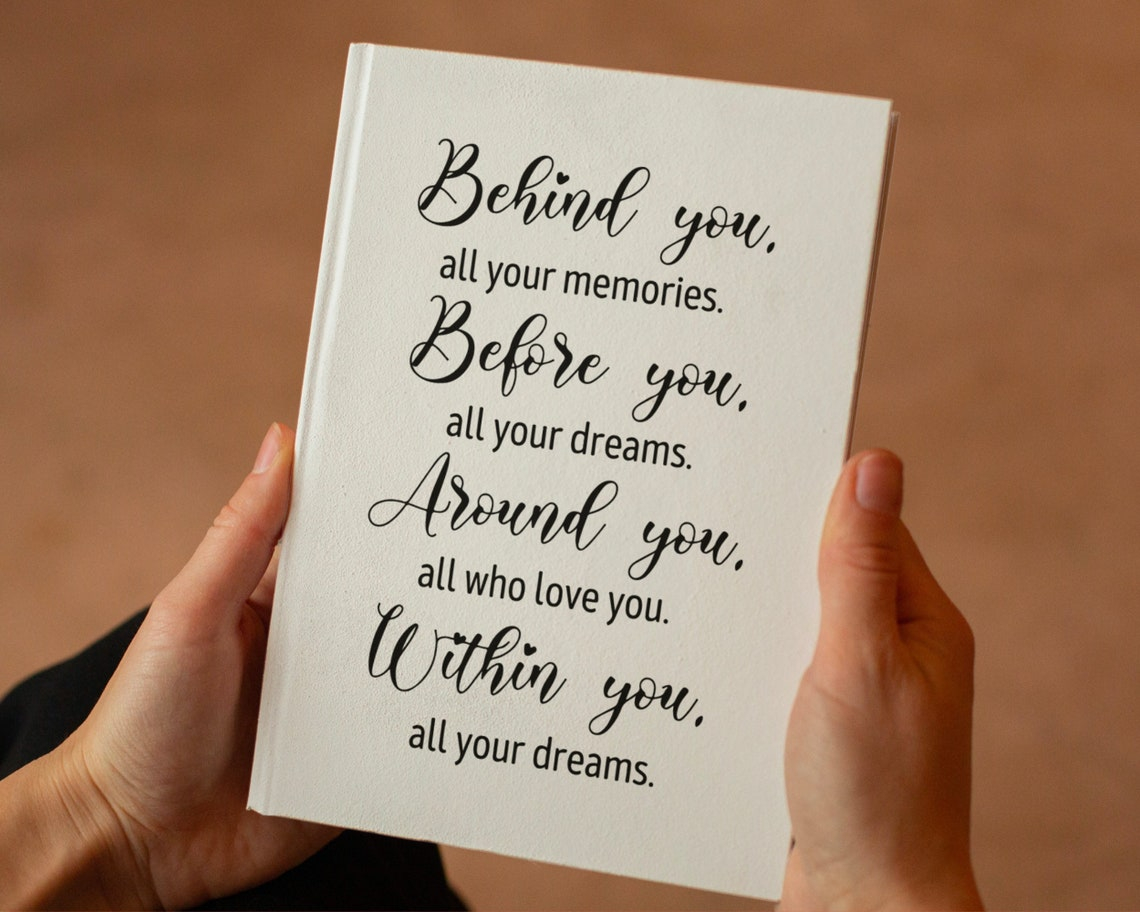 Behind you,
all your memories.
Before you,
all your dreams.
Around you,
all who love you.
Within you,
all your dreams.